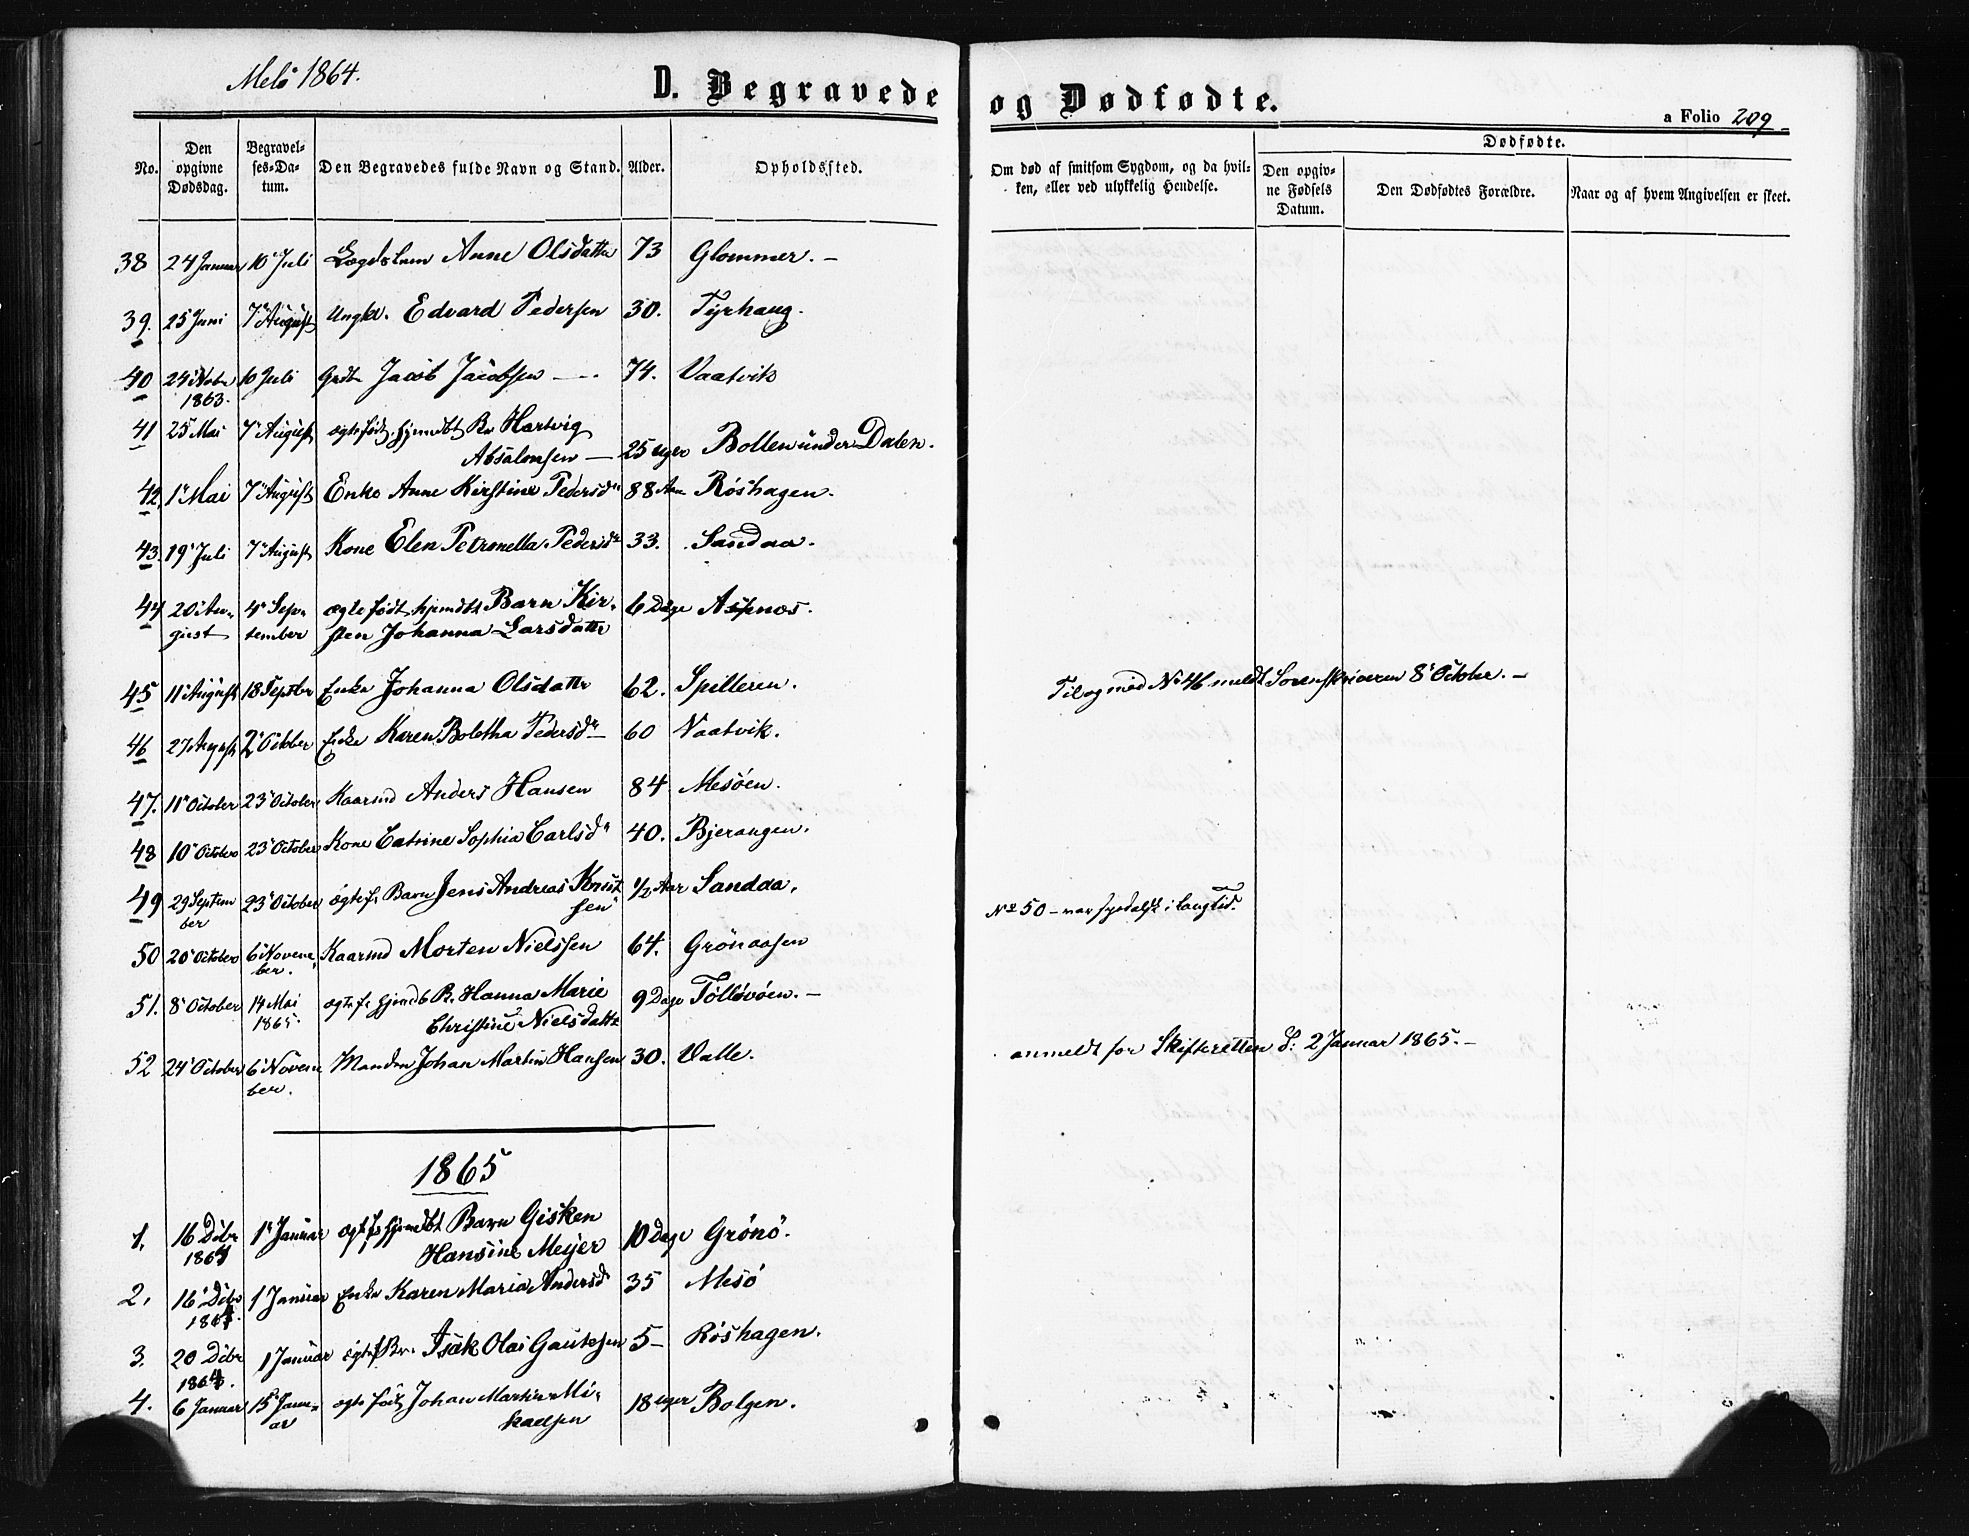 Melö 1864.
D. Begravede og Dødfødte.
a Folio 209
No. Den opgivne Dødsdag. Begravelses-Datum. Den Begravedes fulde Navn og Stand. Alder. Opholdssted. Om død af smitsom Sygdom, og da hvilken, eller ved ulykkelig Hendelse. Dødfødte. Den opgivne Fødsels Datum. Den Dødfødtes Forældre. Naar og af hvem Angivelsen er skeet.
38 24 Januar 10 Juli Lægdslem Anne Olsdatter 73 Glommer. –
39. 25 Juni 7 August Ungkl. Edvard Pedersen 30. Tyrhaug.
40 24 Nobr 1863. 10 Juli Jacob Jacobsen — 74. Vaatvik
41 25 Mai 7 August ægtefødt hjemdbt Br. Hartvig
Absalonsen — 25 uger Bollen under Dalen.
42. 1 Mai 7 August Enke Anne Kirstine Pedersdr 88 Aar Röshagen.
43. 19 Juli 7 August Kone Elen Petronella Pedersdr 33. Sandaa.
44 20 Au- 4 Sep- ægte født hjemdbt Barn Kir- 6 Dage Aspnæs.
gust tember sten Johanna Larsdatter
45 11 August 18 Septbr Enke Johanna Olsdatter 62. Spilleren. Tilligemed No 46 meldt Sorenskriveren 8 Octobr. –
46 27 August 2 October Enke Karen Boletha Pedersdr – 60 Vaatvik.
47. 11 October 23 October Kaarmd Anders Hansen 84 Mesöen.
48 10 October 23 October Kone Catrine Sophia Carlsdr 40. Bjerangen.
49 29 Septem- 23 October ægtef. Barn Jens Andreas Knut- 1/2 Aar Sandaa.
ber sen
No 50 – var spedalsk i lang Tid.
50 20 October 6 Novem- Kaarmd Morten Nielssen 64. Grönaasen
ber.
51. 8 October 14 Mai ægtef. hjemdb B. Hanna Marie 9 Dage –
1865. Christine Nielsdatter
52 24 October 6 Novem- Manden Johan Martin Hansen 30. Valle. anmeldt for Skifteretten d: 2 Januar 1865. –
ber.
1865
1. 16 Dcbr 1 Januar ægtef. hjemdbt Barn Gisken
1864 Hansine Meijer 10 Dage Grönö.
2. 16 Dcbr 1 Januar Enke Karen Maria Andersd 35 Mesö
1864.
3. 20 Dcbr 1 Januar ægtef Br. Isak Olai Gautesen 5 – Röshagen.
1864.
4. 6 Januar 15 Janu- ægte født Johan Martin Mi- 18 uger Bolgen.
ar kaelsen